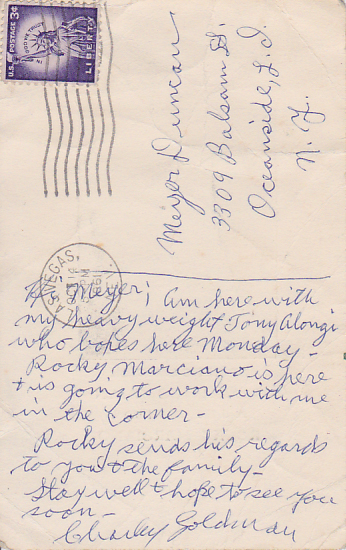 U.S. POSTAGE 3¢
IN GOD WE TRUST
LIBERTY
Meyer Duncan
3309 Balsam St.
Oceanside, L. I.
N. Y.
LAS VEGAS,
Hi Meyer; Am here with
my heavy weight Tony Alongi
who boxes here Monday -
Rocky Marciano is here
+ is going to work with me
in the corner -
Rocky sends his regards
to you + the family -
Stay well + hope to see you
soon -
Charley Goldman